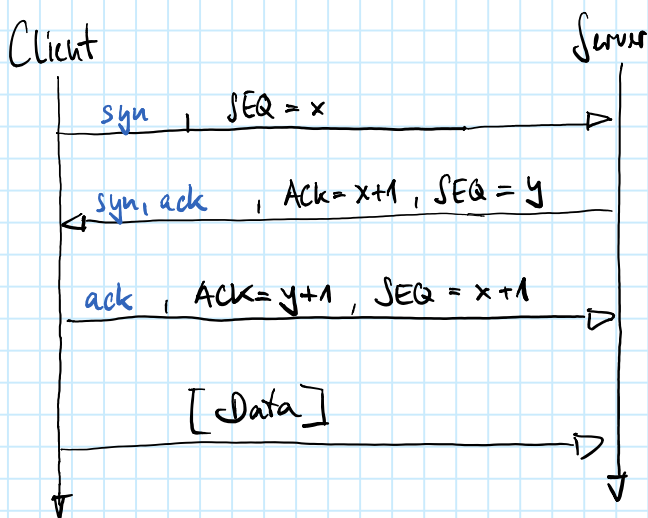 Client Server
syn , SEQ = x
syn, ack , ACK = x+1 , SEQ = y
ack , ACK = y+1 , SEQ = x+1
[Data]